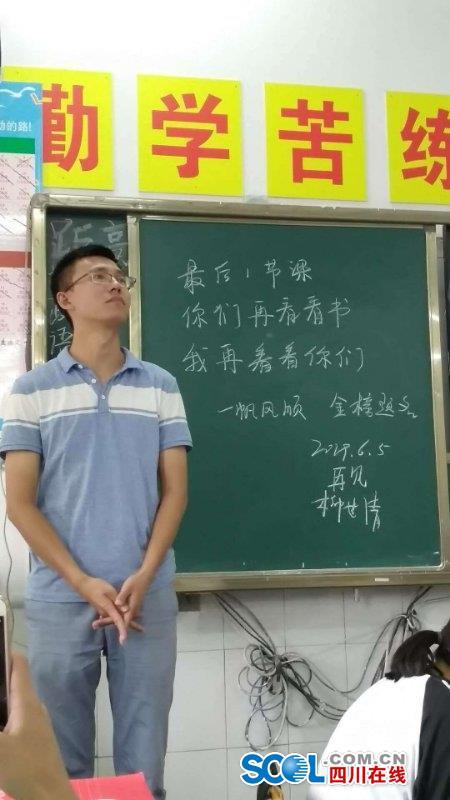 的路!
勤学苦练
距高
语
最后1节课
你们再看看书
我再看看你们
一帆风顺 金榜题名
2019.6.5
再见
柳世清
SCOL.COM.CN
四川在线